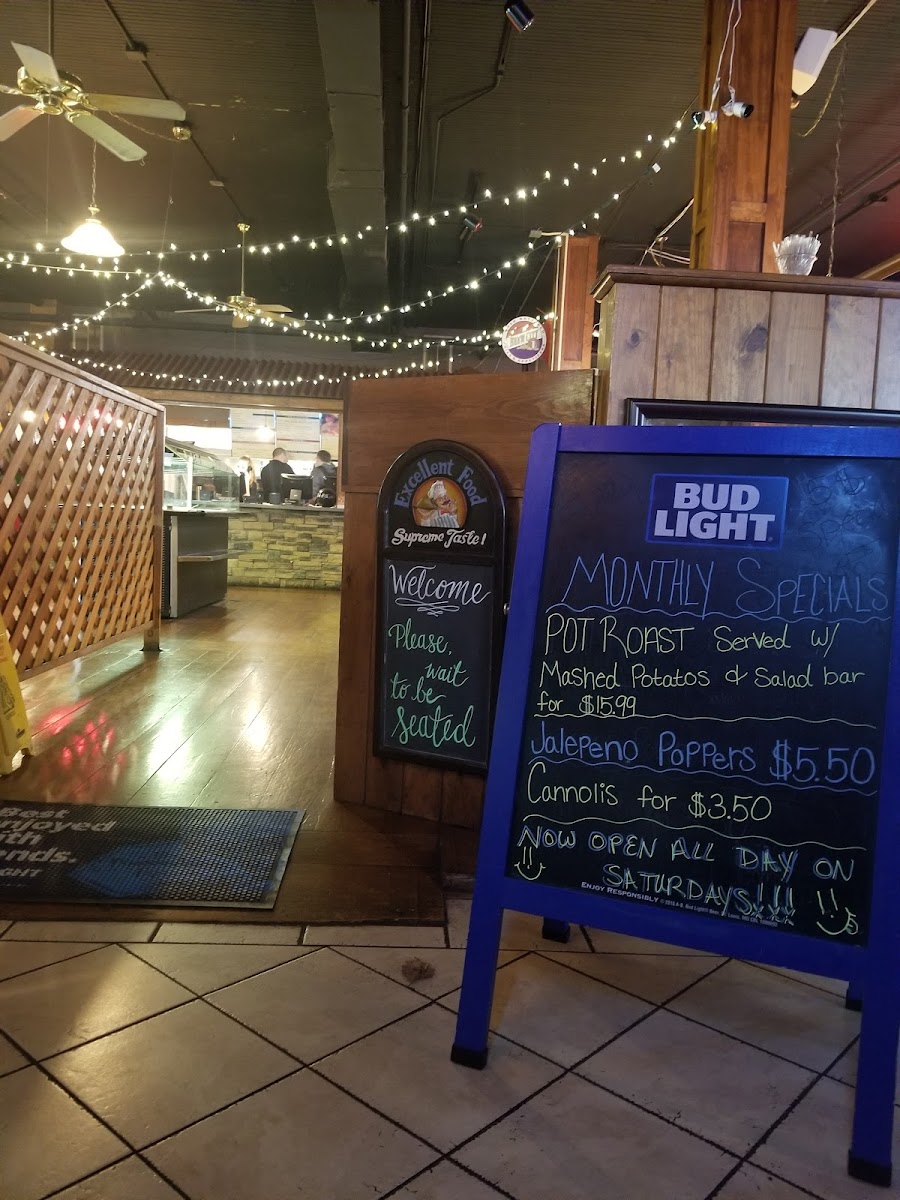 Excellent Food
Supreme Taste!
Welcome
Please,
wait
to be
Seated
BUD
LIGHT
MONTHLY SPECIALS
POT ROAST Served w/
Mashed Potatos & Salad bar
for $15.99
Jalepeno Poppers $5.50
Cannolis for $3.50
NOW OPEN ALL DAY ON
SATURDAYS!!!
ENJOY RESPONSIBLY
Best
njoyed
ith
ends.
GHT